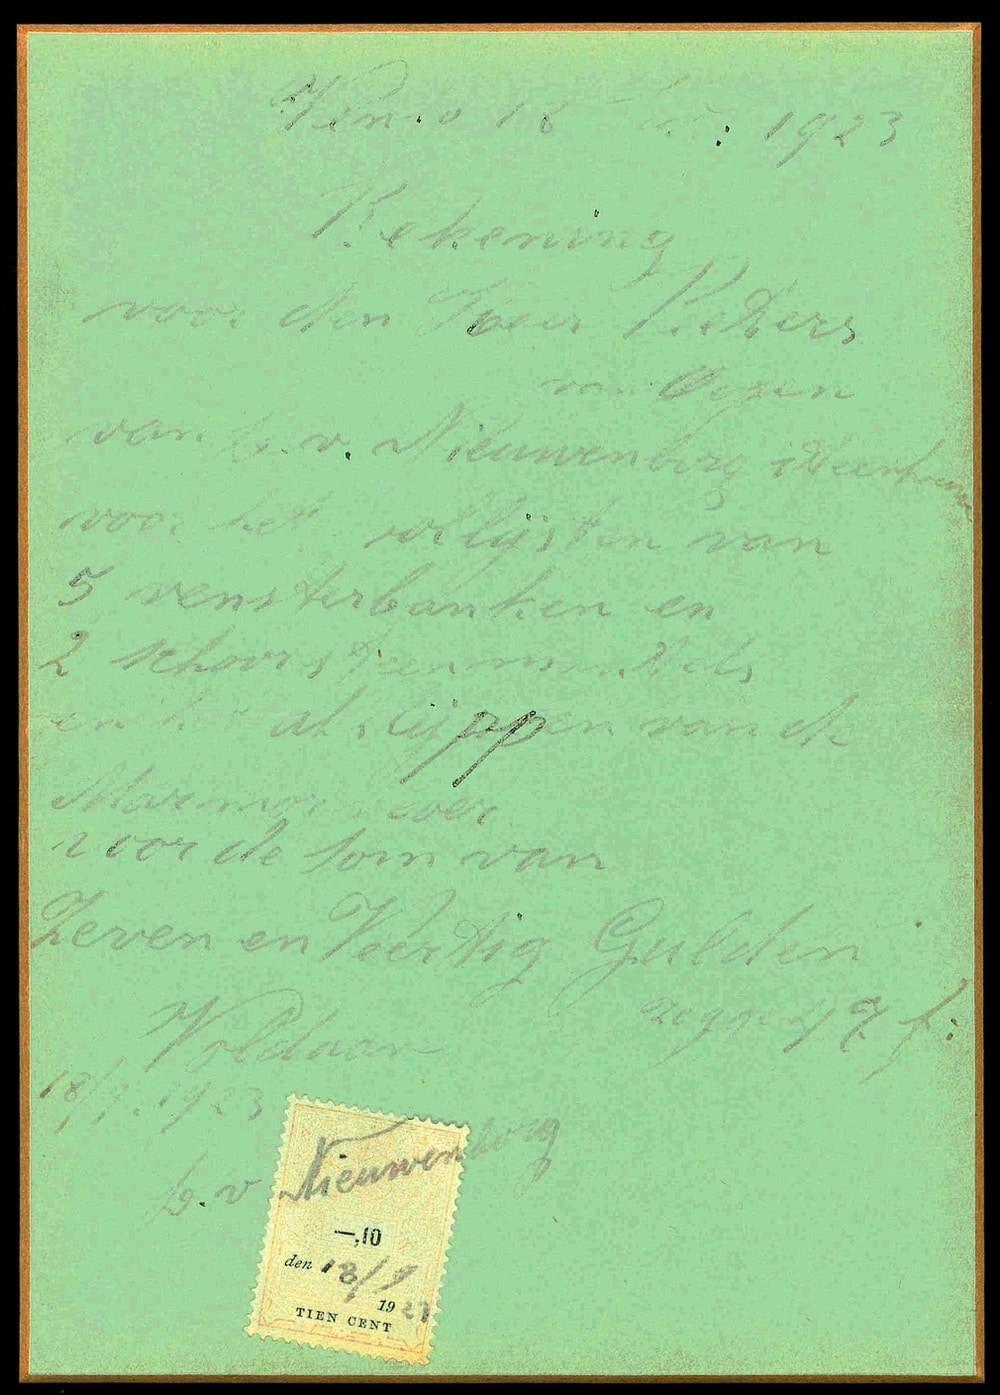 18 1923
Rekening
voor den Heer Peeters
van
van v. Nieuwenborg
voor het van
5 vensterbanken en
2 schoorsteenmantels
en van de
Marmor
voor de som van
Zeven en Veertig Gulden
zegge 47 f.
Voldaan
18/9.1923
v Nieuwenborg
—,10
den 18/9
19 23
TIEN CENT